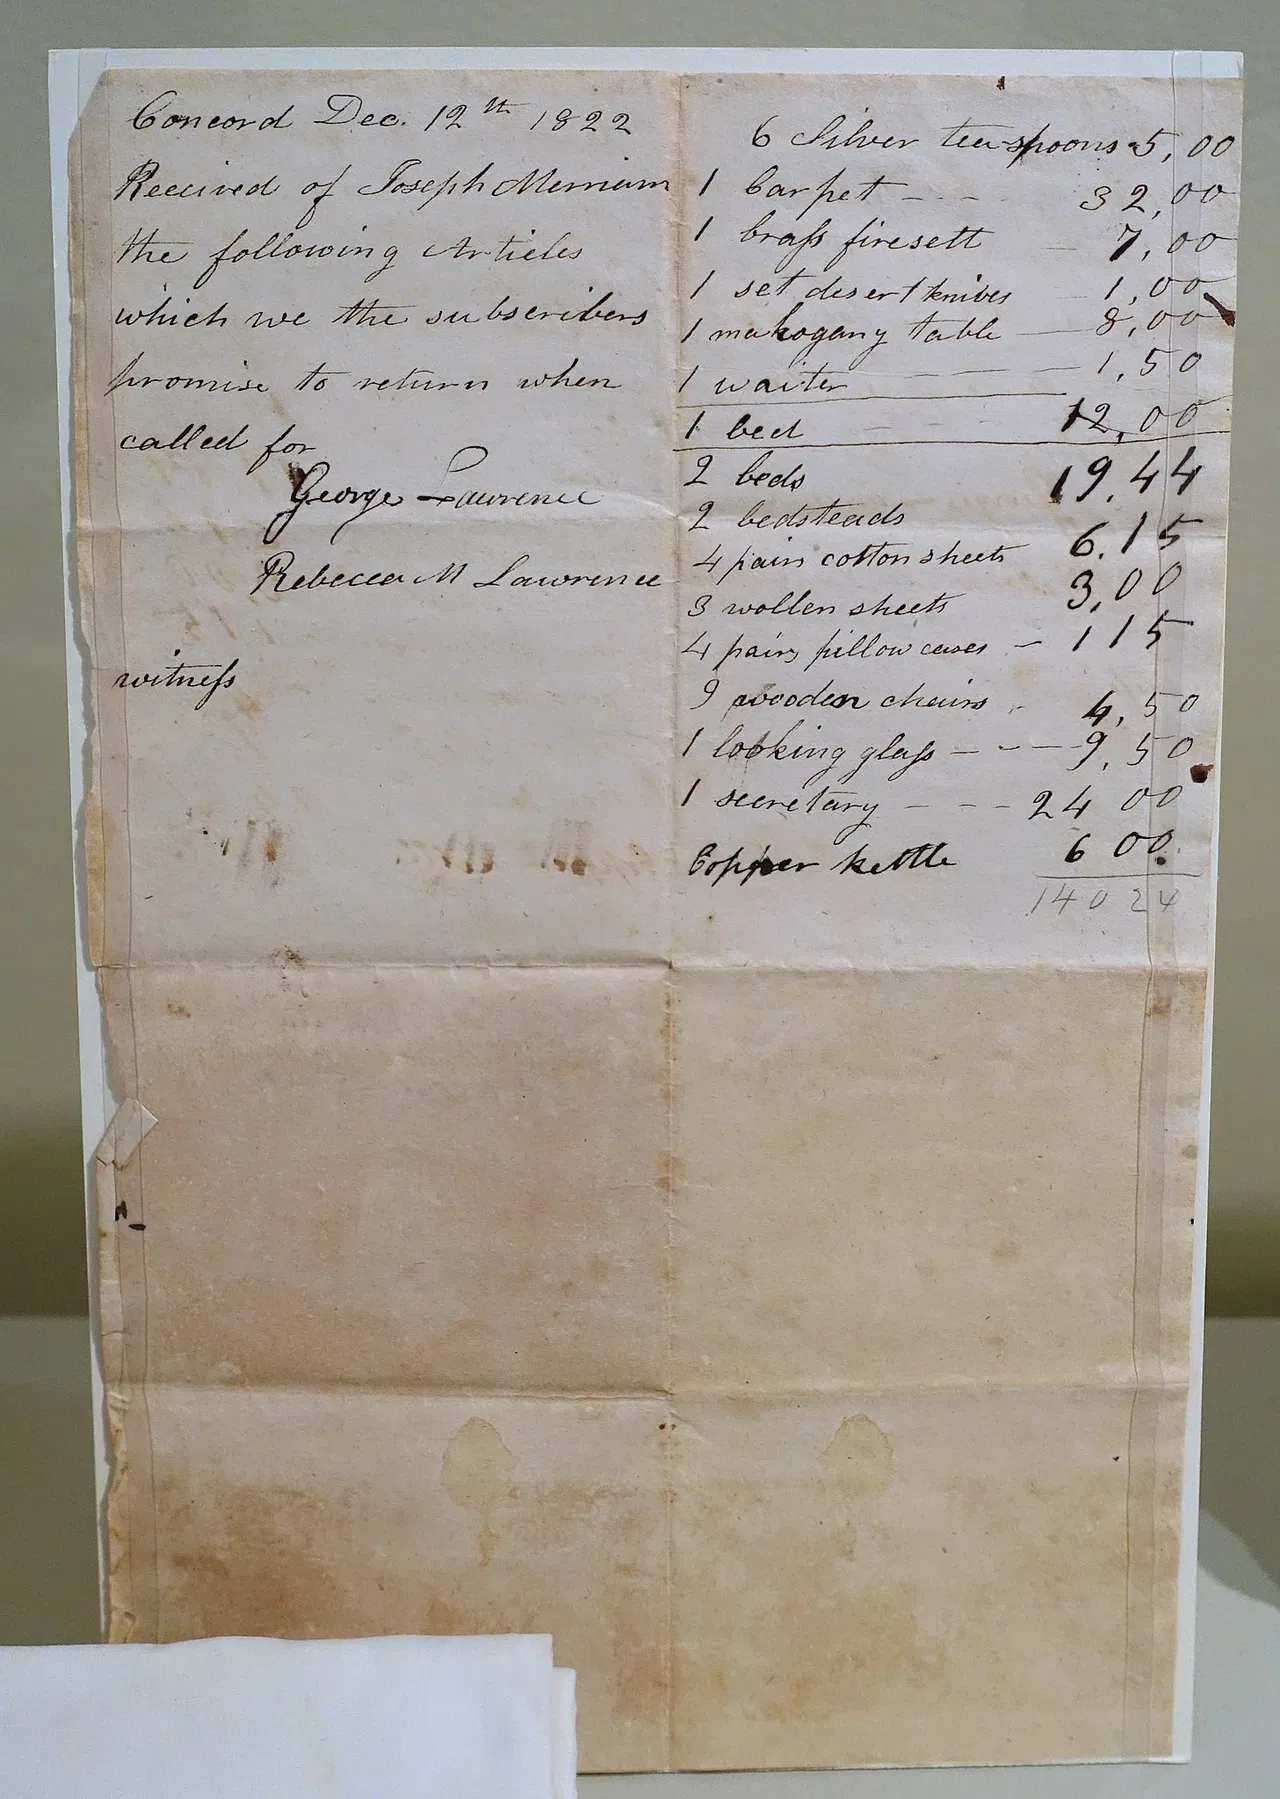 Concord Dec. 12th 1822
Received of Joseph Merriam
the following Articles
which we the subscribers
promise to return when
called for
George Lawrence
Rebecca M Lawrence
witneſs
6 Silver tea spoons 5,00
1 Carpet - - - 32,00
1 braſs firesett - 7,00
1 set desert knives - 1,00
1 mahogany table — 8,00
1 waiter - - - 1,50
1 bed - - - 12,00
2 beds 19.44
2 bedsteads
4 pairs cotton sheets 6.15
3 wollen sheets 3,00
4 pairs pillow cases - 1 15
9 wooden chairs - 4,50
1 looking glaſs - - - 9,50
1 secretary - - - 24 00
Copper kettle 6 00
140 24